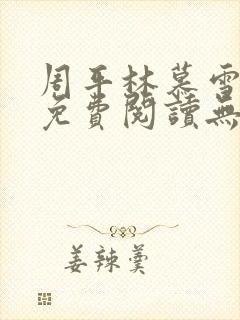 周平林慕雪
免費閱讀無
姜辣羹